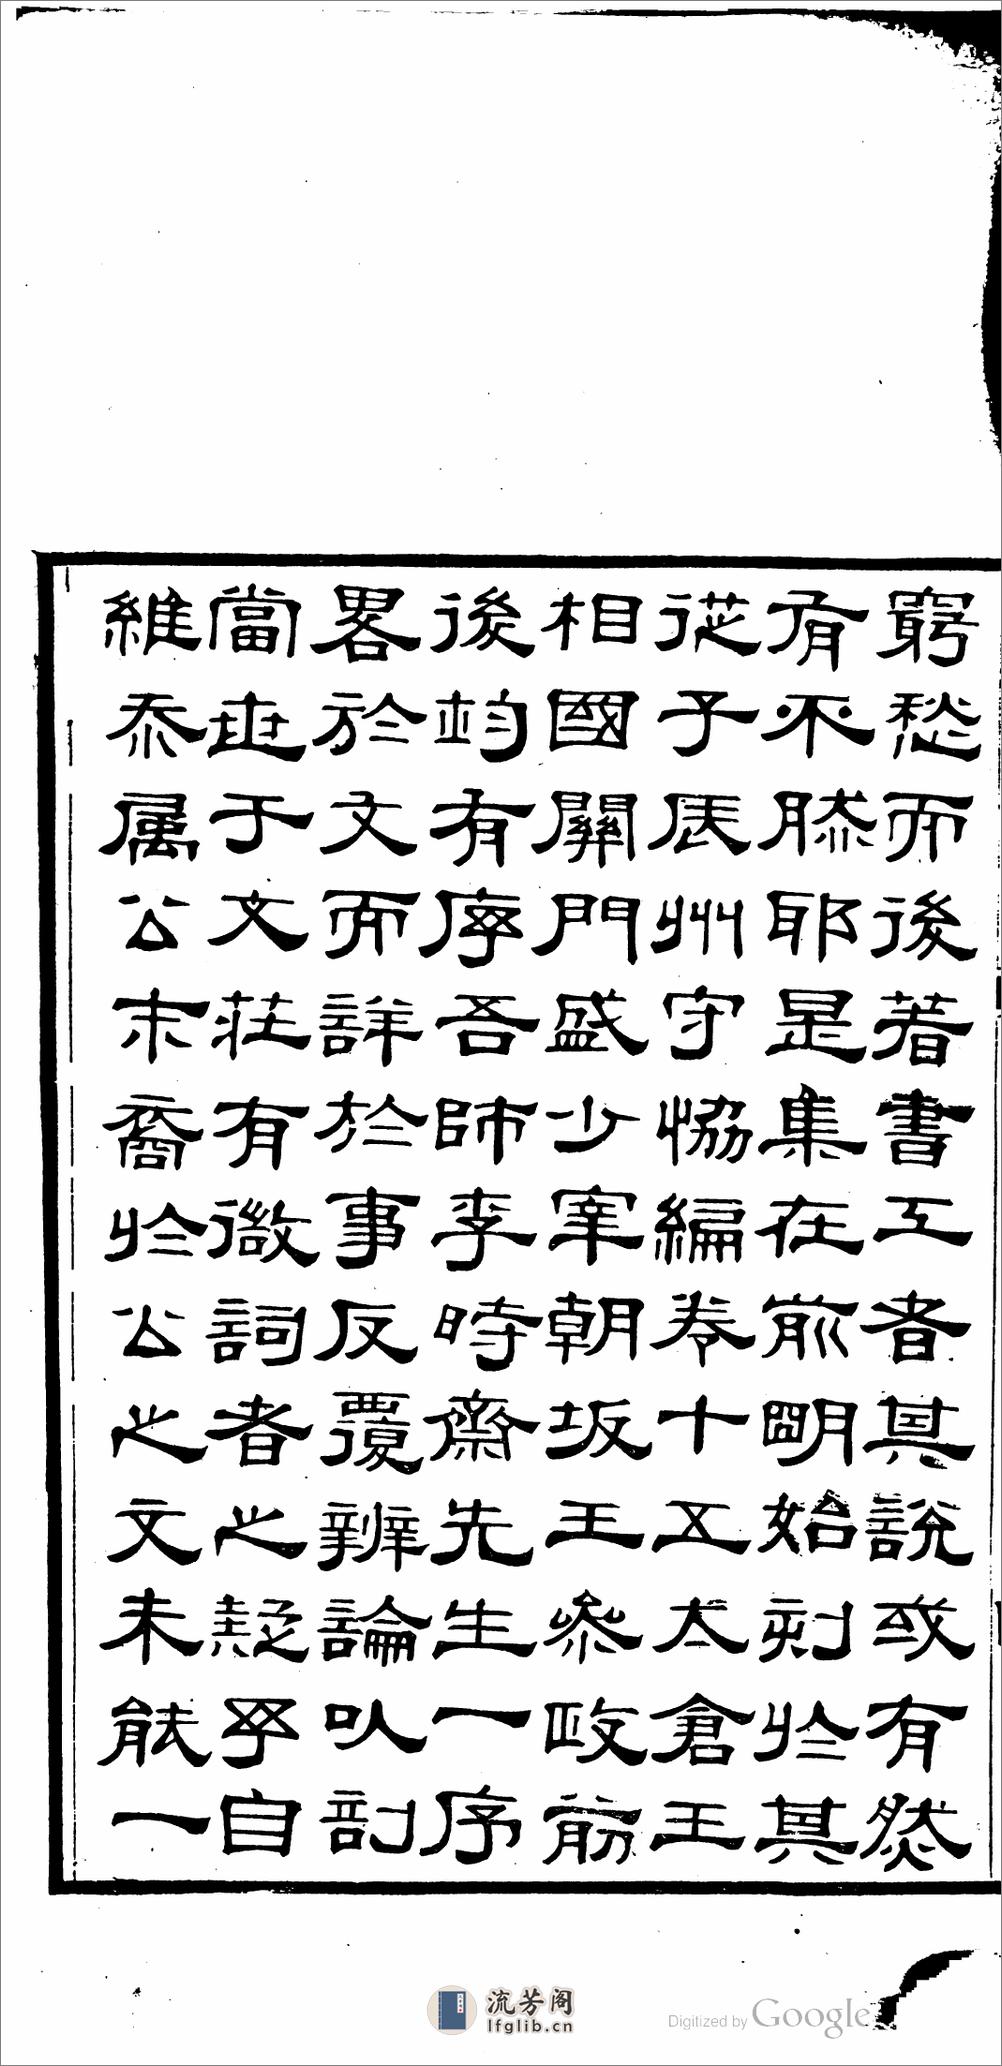 窮愁而後著書工者其說或有然
有不膝耶是集在前明始刻於其
從子辰州守協編卷十五太倉王
相國關門盛少宰朝坂王參政前
後均有序吾師李時齋先生一序
畧於文而詳於事反覆辨論以訂
當世于文莊有微詞者之疑乎自
維忝属公末裔於公之文未能一
流芳阁
lfglib.cn
Digitized by Google